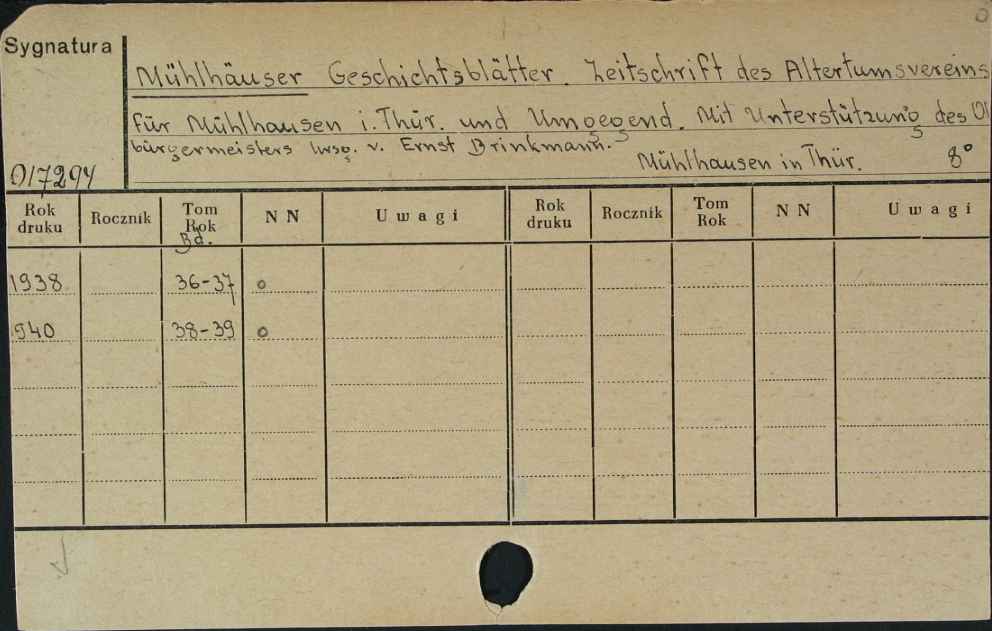 Sygnatura
Mühlhäuser Geschichtsblätter. Zeitschrift des Altertumsvereins
für Mühlhausen i. Thür. und Umgegend. Mit Unterstützung des
bürgermeisters hrsg. v. Ernst Brinkmann.
Mühlhausen in Thür. 8°
017294
Rok druku Rocznik Tom Rok NN Uwagi Rok druku Rocznik Tom Rok NN Uwagi
Bd.
1938 36-37 o
940 38-39 o